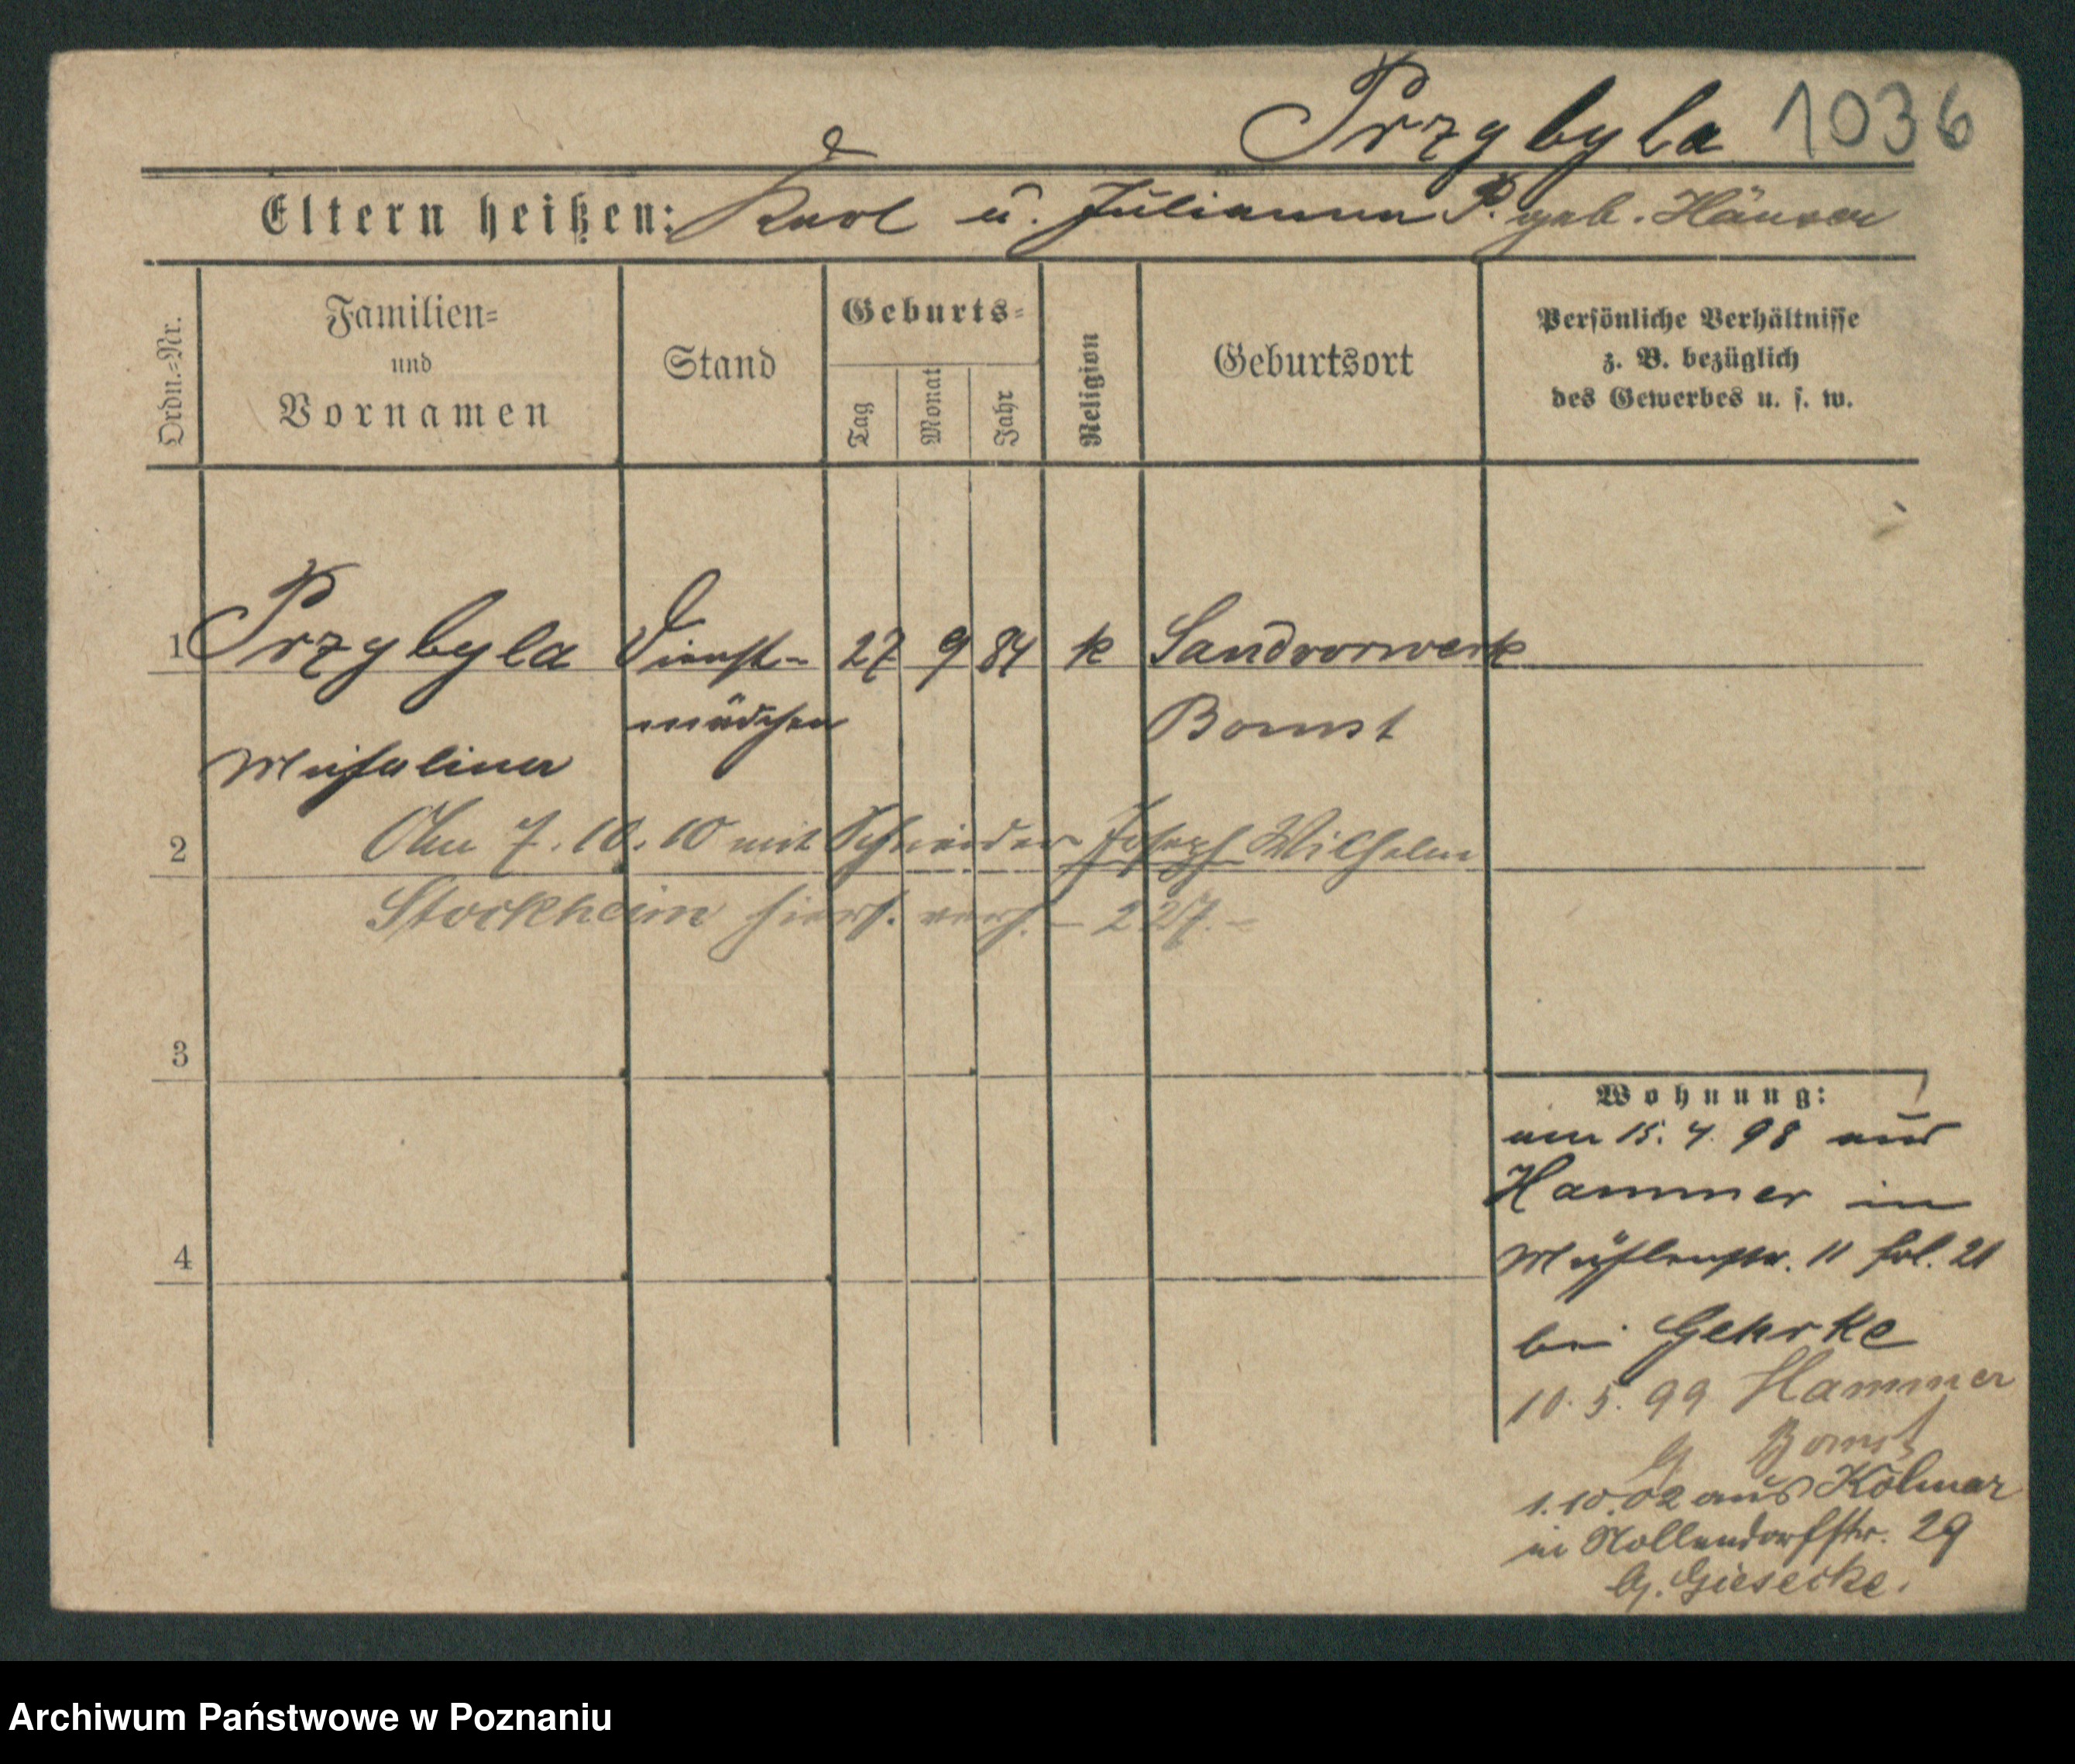 Przybyla 1036
Eltern heißen: Karl u. Julianna P. geb.
Ordn.-Nr.
Familien-
und
Vornamen
Stand
Geburts-
Tag
Monat
Jahr
Religion
Geburtsort
Persönliche Verhältnisse
z. B. bezüglich
des Gewerbes u. s. w.
1 Przybyla Dienst- 27 9 84 k Sandvorwerk
mädchen Bomst
Michalina
2 Am 7. 10. 10 mit Schneider Joseph Wilhelm
Stockheim hiers. verh. – 227. –
3
4
Wohnung:
am 15. 4. 98 aus
Hammer in
Mühlenstr. 11 fol. 21
bei Gehrke
10. 5. 99 Hammer
Bomst
1.10.02 aus Kolmar
in Nollendorfstr. 29
b/. Giesecke.
Archiwum Państwowe w Poznaniu